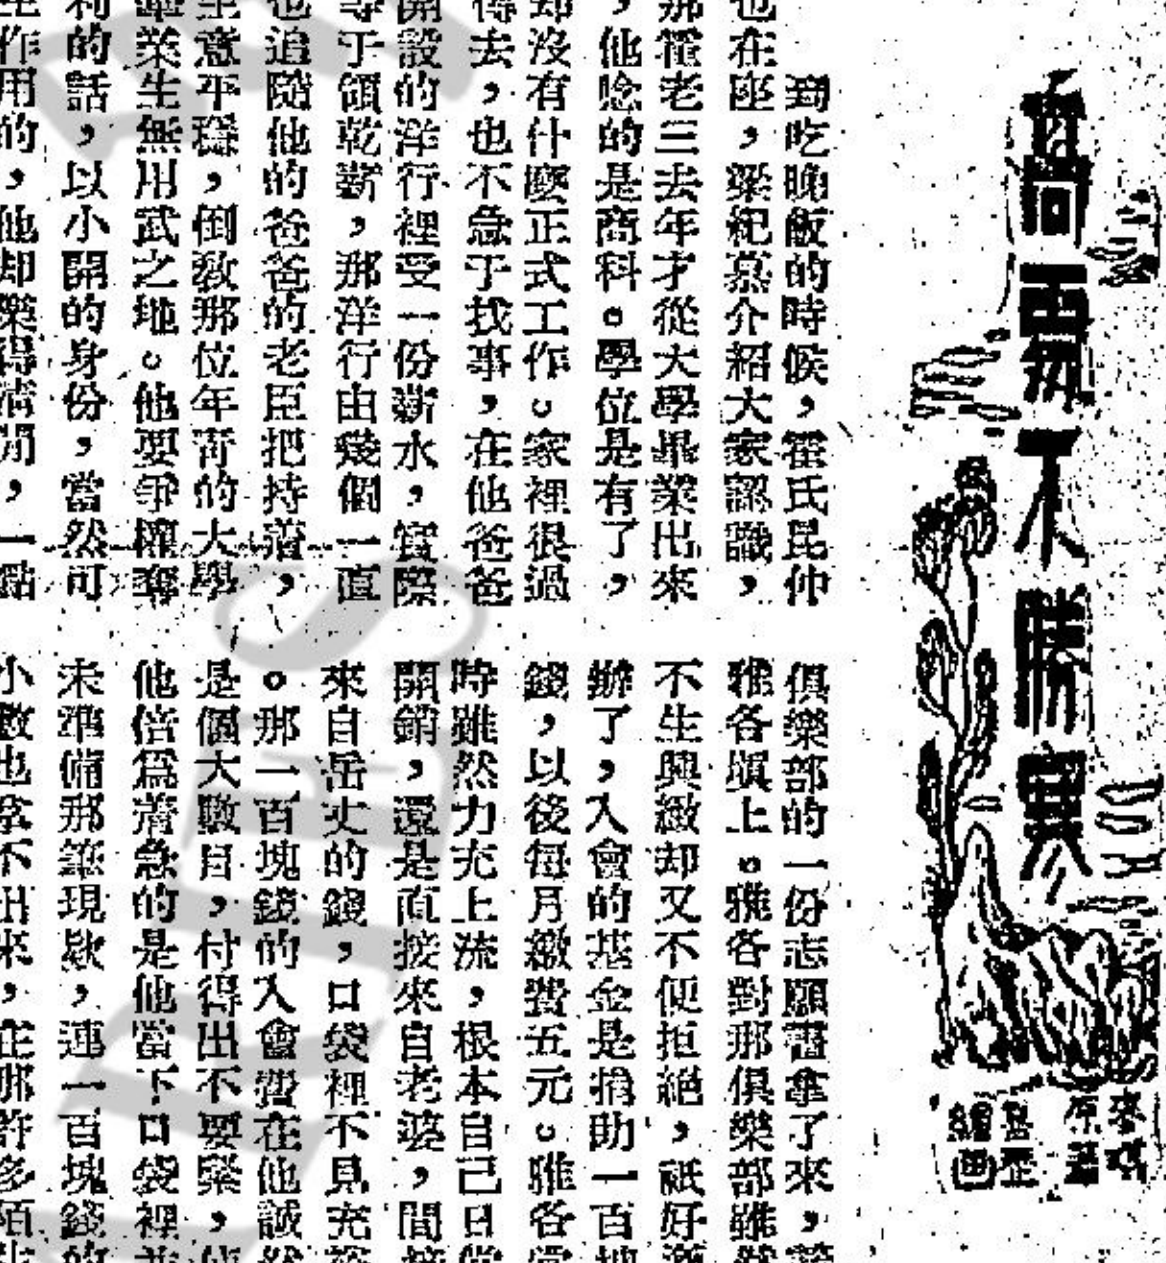 高處不勝寒
原著
繪画
到吃晚飯的時候,霍氏昆仲
也在座,梁紀慕介紹大家認識,
那霍老三去年才從大學畢業出來
,他唸的是商科。學位是有了,
却沒有什麼正式工作。家裡很過
得去,也不急于找事,在他爸爸
開設的洋行裡受一份薪水,實際
等于領乾薪,那洋行由幾個一直
也追隨他的爸爸的老臣把持着,
生意平穩,倒教那位年靑的大學
畢業生無用武之地。他要爭權奪
利的話,以小開的身份,當然可
作用的,他却樂得清閒,一點
俱樂部的一份志願書拿了來,
雅各塡上。雅各對那俱樂部雖然
不生興緻却又不便拒絕,祇好
辦了,入會的基金是捐助一百
錢,以後每月繳費五元。雅各當
時雖然力充上流,根本自己日常
開銷,還是直接來自老婆,間接
來自岳丈的錢,口袋裡不見充裕
。那一百塊錢的入會費在他誠然
是個大數目,付得出不要緊,使
他倍爲着急的是他當下口袋裡並
未準備那筆現欵,連一百塊錢的
小數也拿不出來,在那許多陌生